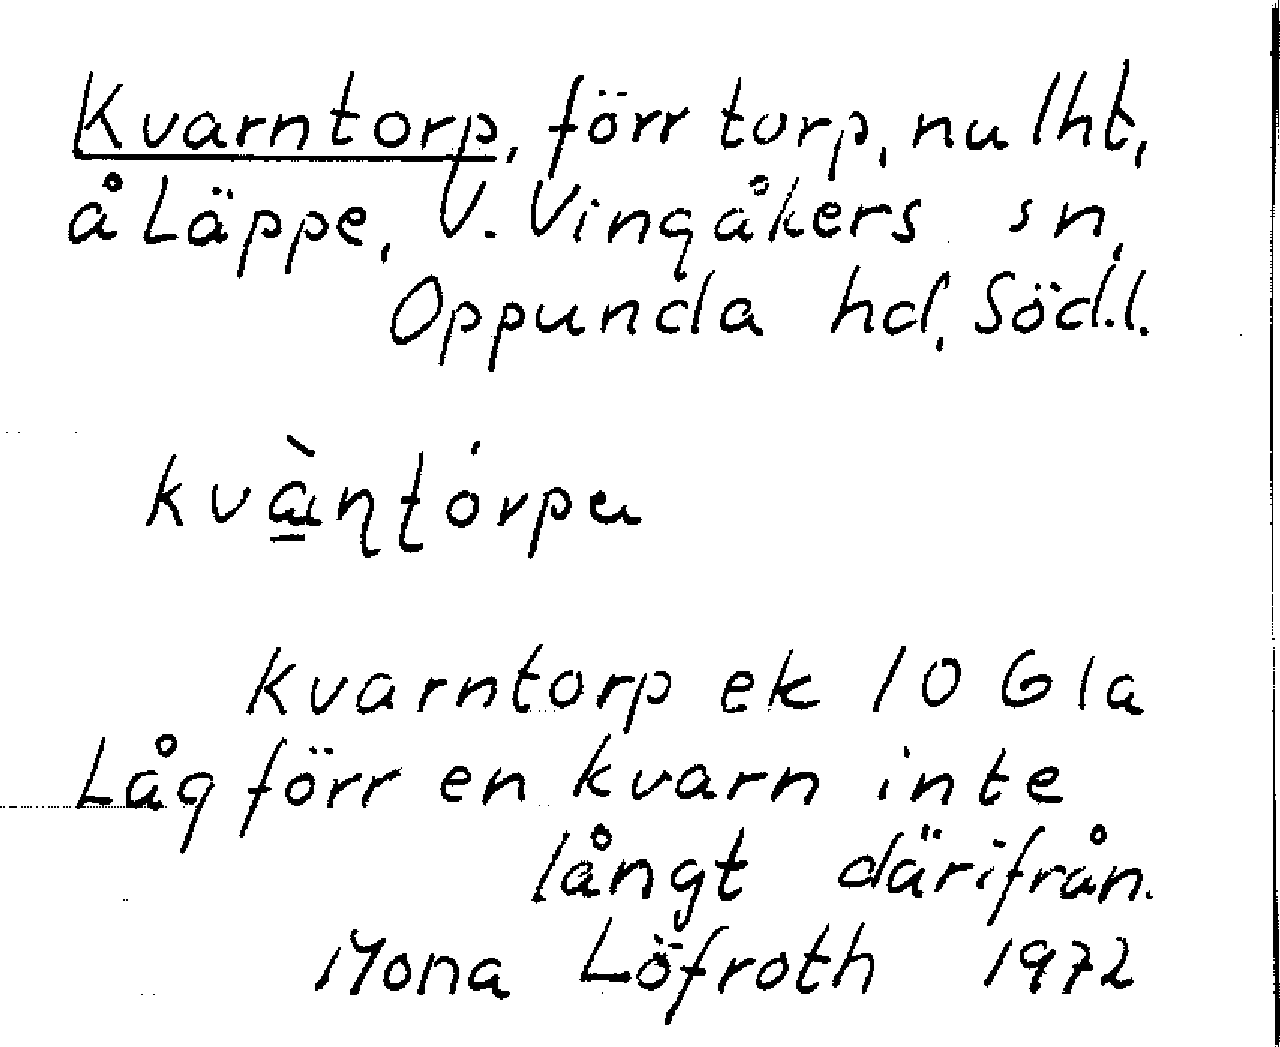 Kvarntorp, förr torp, nu lht,
å Läppe, V. Vingåkers sn,
Oppunda hd, Söd.l.
kvàṇṭórpu
Kvarntorp ek 10 G1a
Låg förr en kvarn inte
långt därifrån.
Mona Löfroth 1972